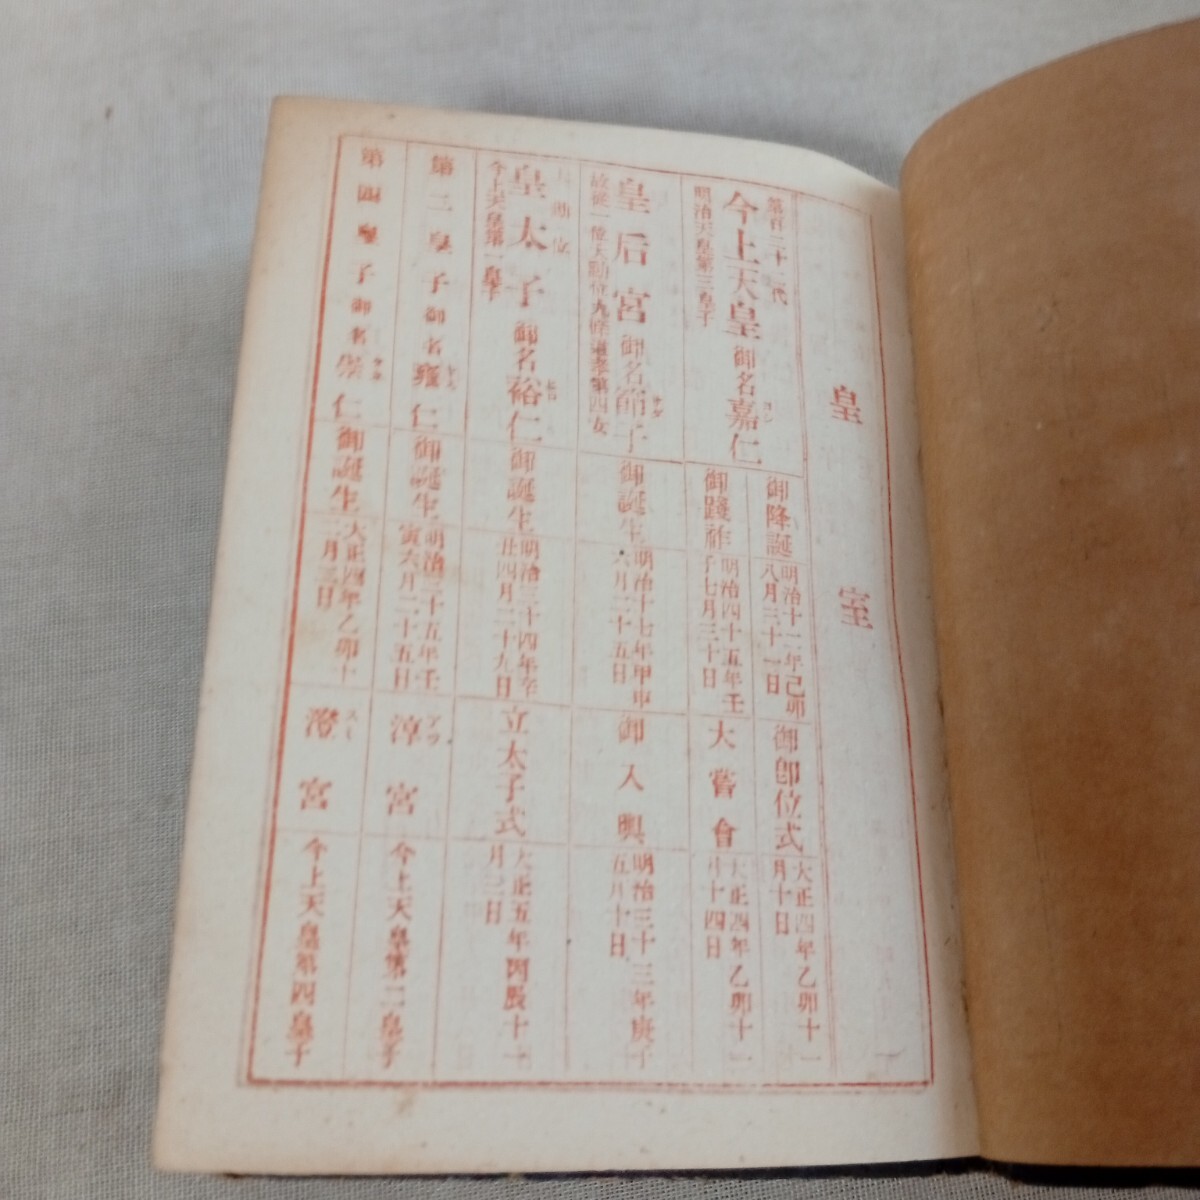 皇室
第百二十二代
今上天皇 御名嘉仁
ヨシ
明治天皇第三皇子
御降誕
明治十二年己卯
八月三十一日
御即位式
大正四年乙卯十一
月十日
御踐祚
明治四十五年壬
子七月三十日
大嘗會
大正四年乙卯十一
月十四日
皇后宮 御名節子
サダ
故從一位大勳位九條道孝第四女
御誕生
明治十七年甲申
六月二十五日
御入輿
明治三十三年庚子
五月十日
皇太子 御名裕仁
ヒロ
今上天皇第一皇子
御誕生
明治三十四年辛
丑四月二十九日
立太子式
大正五年丙辰十一
月三日
第二皇子 御名雍仁
ヤス
御誕生
明治三十五年壬
寅六月二十五日
淳宮
アツ
今上天皇第二皇子
第四皇子 御名崇仁
タカ
御誕生
大正四年乙卯十
二月二日
澄宮
スミ
今上天皇第四皇子
一